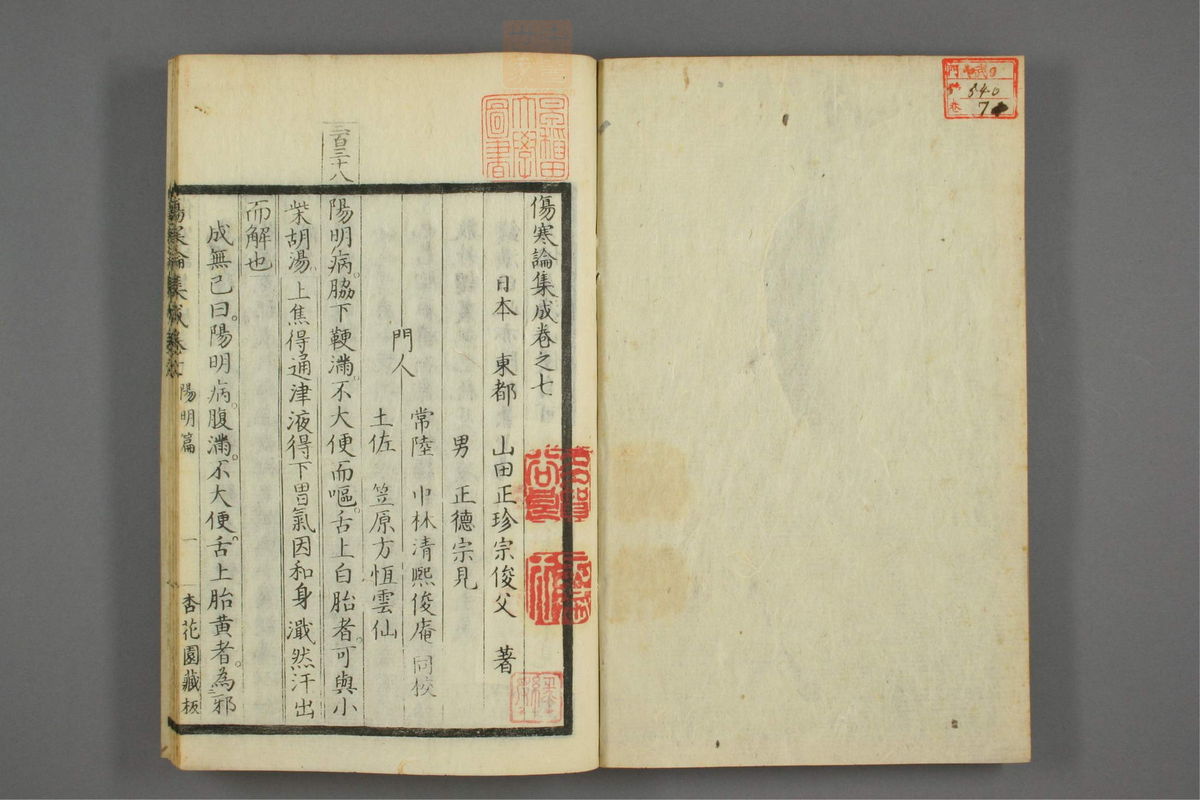 門
540
7
早稲田
大學
圖書
三百三十八
傷寒論集成卷之七
日本 東都 山田正珍宗俊父 著
男 正德宗見
門人
常陸 中林清熙俊庵 同校
土佐 笠原方恒雲仙
陽明病。脇下鞕滿。不大便而嘔。舌上白胎者。可與小
柴胡湯。上焦得通津液得下胃氣因和身濈然汗出
而解也
成無己曰。陽明病。腹滿。不大便。舌上胎黄者。為邪
陽明篇
一
杏花園藏板